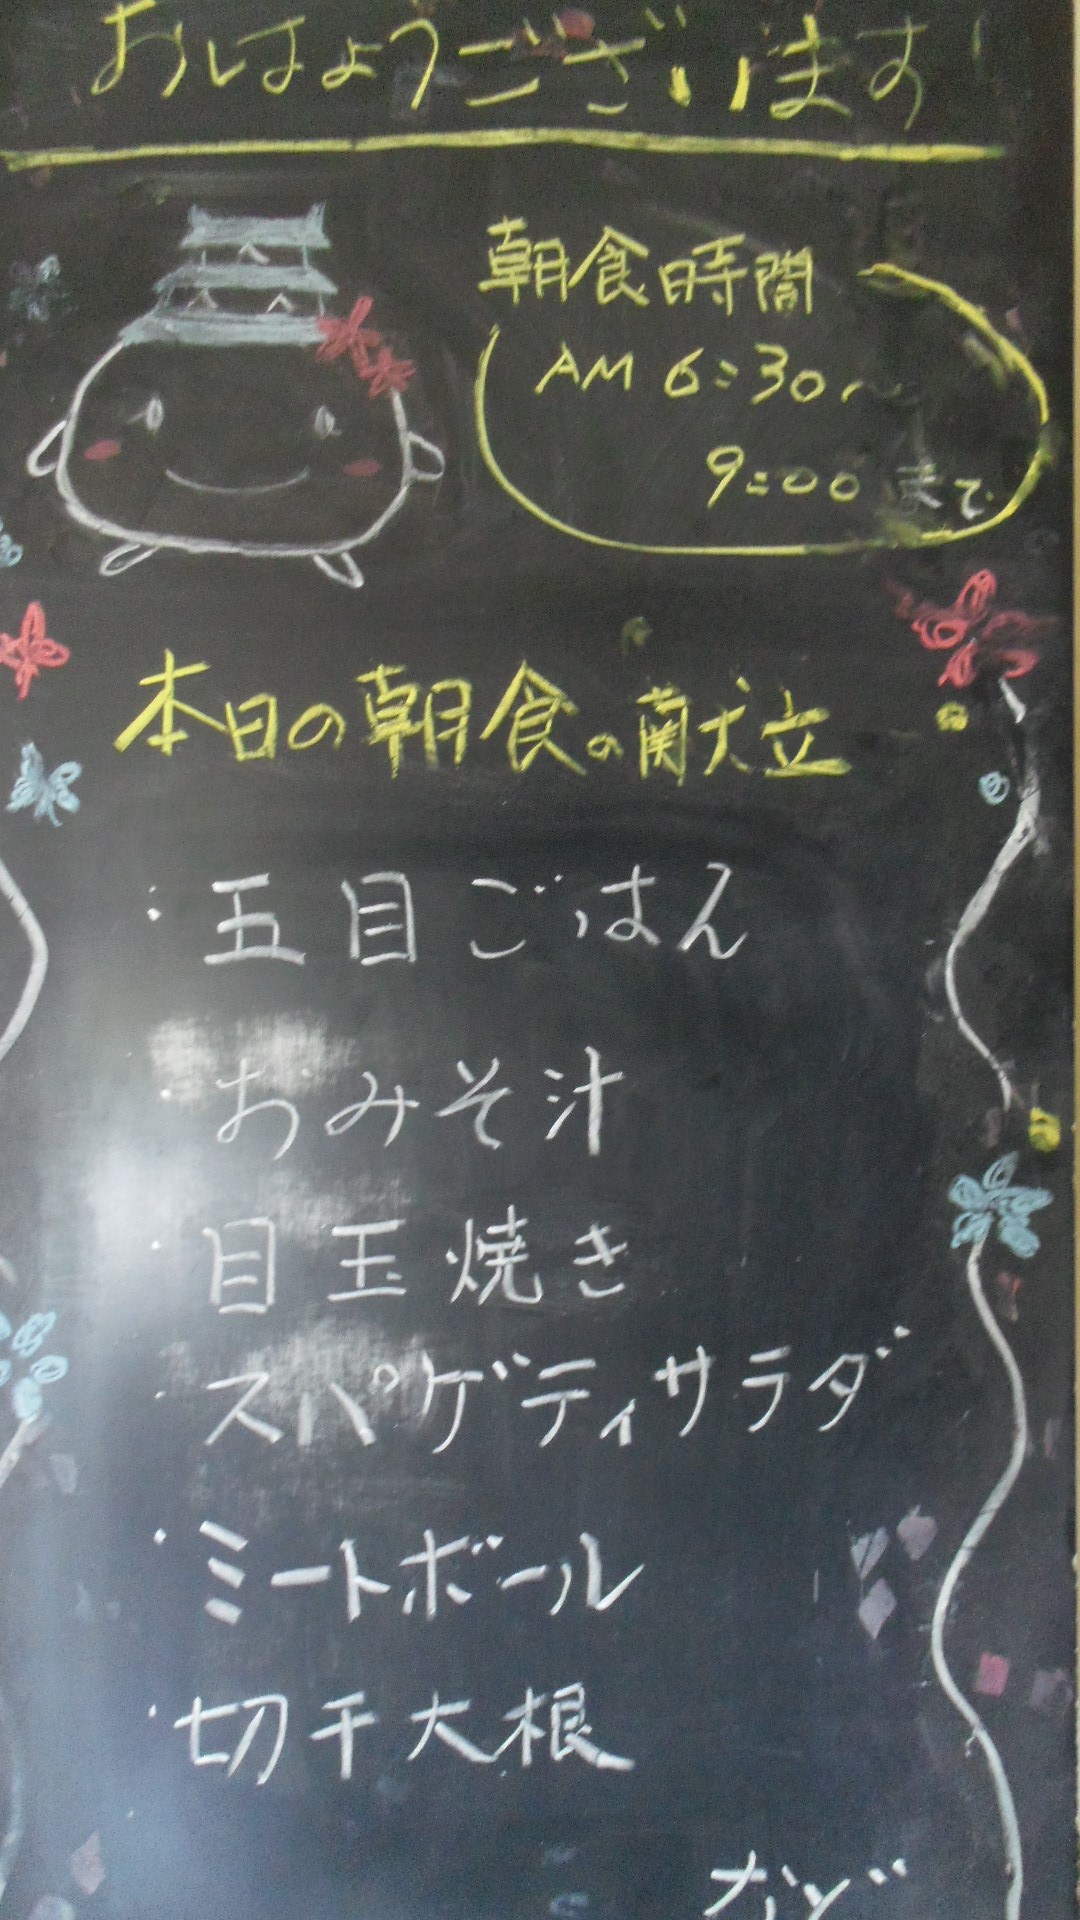 おはようございます!
朝食時間
AM 6:30〜
9:00 まで
本日の朝食の献立
・五目ごはん
・おみそ汁
・目玉焼き
・スパゲティサラダ
・ミートボール
・切干大根
など